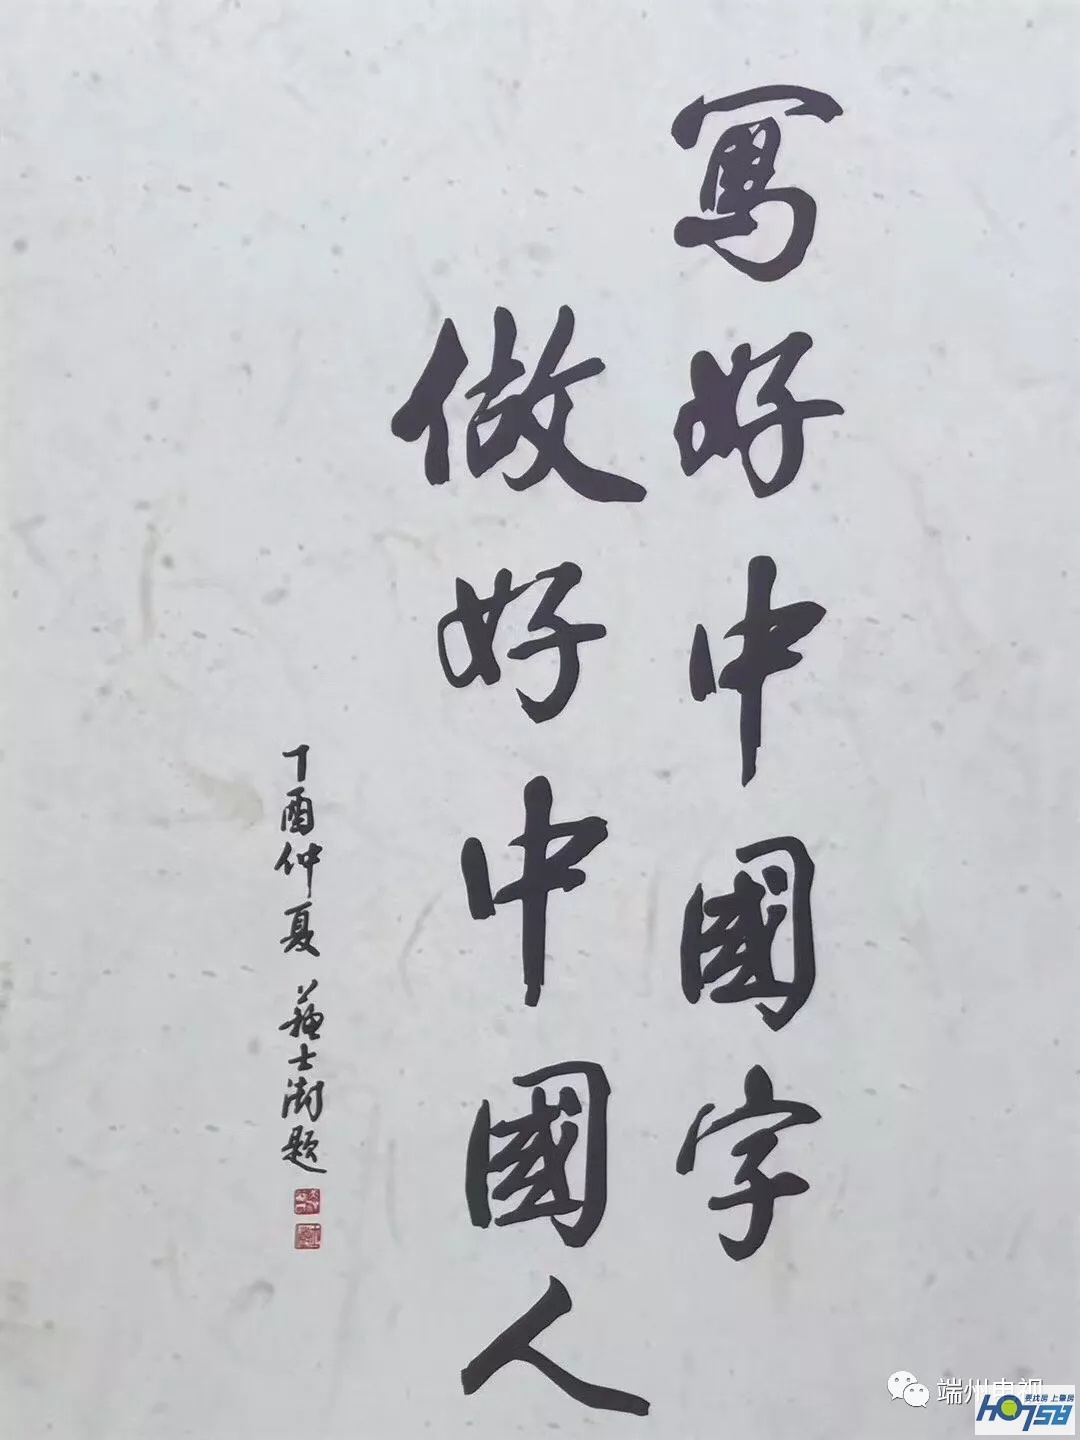 寫好中國字
做好中國人
丁酉仲夏 蘇士澍題
端州电视
要找房 上肇房
HO758